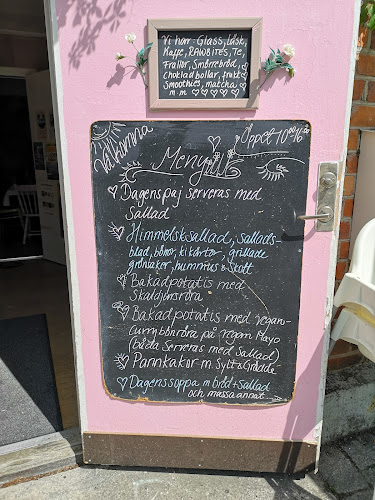 Vi har: Glass, Läsk,
Kaffe, RAWBITES, Te,
Frallor, Smörrebröd,
Chokladbollar, frukt
Smoothies, matcha
m m
Välkomna
Öppet 10-16
Meny
Dagenspaj serveras med
Sallad
Himmelsksallad, sallads-
blad, bönor, kikärtor, grillade
grönsaker, hummus & Stött
Bakad potatis med
Skaldjursröra
Bakad potatis med vegan-
Currybönröra på vegan Mayo
(båda Serveras med Sallad)
Pannkakor m. Sylt & Grädde
Dagenssoppa m bröd + sallad
och massa annat